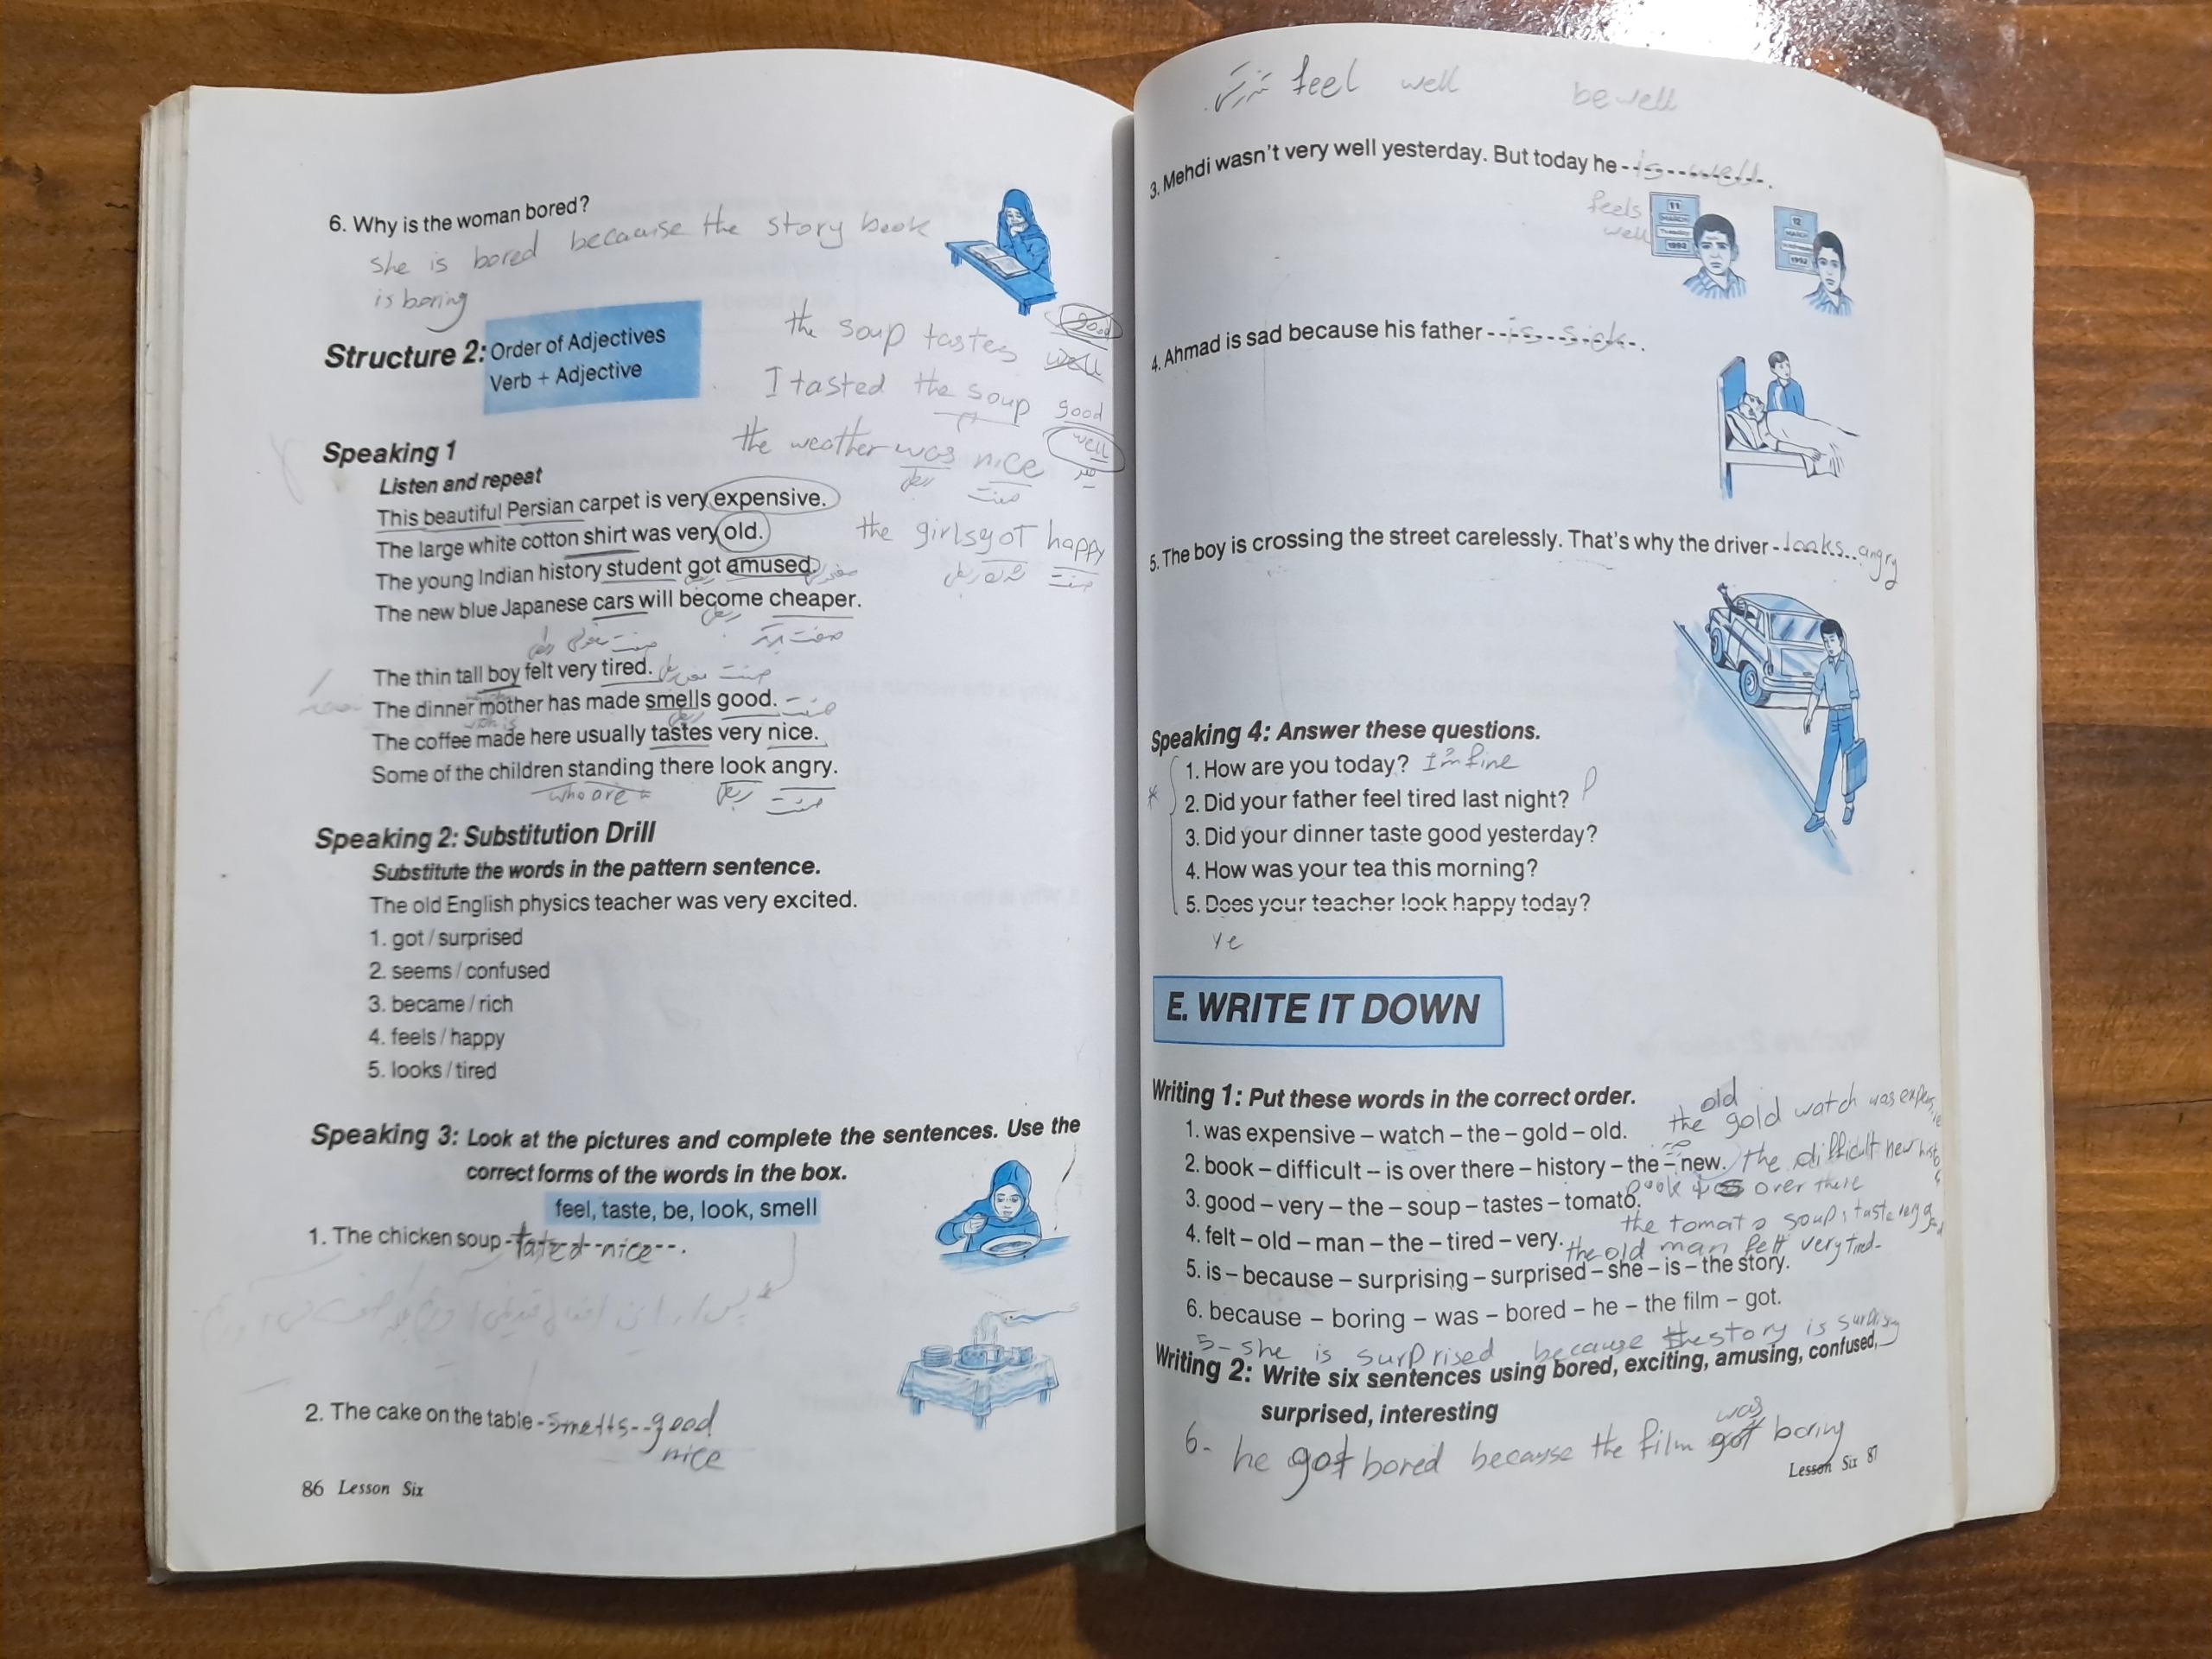 6. Why is the woman bored?
she is bored because the story book
is boring
Structure 2: Order of Adjectives
Verb + Adjective
the soup tastes good
well
I tasted the soup good
well
the weather was nice
the girls got happy
Speaking 1
Listen and repeat
This beautiful Persian carpet is very expensive.
The large white cotton shirt was very old.
The young Indian history student got amused.
The new blue Japanese cars will become cheaper.
The thin tall boy felt very tired.
The dinner mother has made smells good.
The coffee made here usually tastes very nice.
Some of the children standing there look angry.
who are
Speaking 2: Substitution Drill
Substitute the words in the pattern sentence.
The old English physics teacher was very excited.
1. got / surprised
2. seems / confused
3. became / rich
4. feels / happy
5. looks / tired
Speaking 3: Look at the pictures and complete the sentences. Use the
correct forms of the words in the box.
feel, taste, be, look, smell
1. The chicken soup - tated nice.
2. The cake on the table - smells good
nice
86 Lesson Six
feel well be well
3. Mehdi wasn't very well yesterday. But today he is well.
feels
well
11
MARCH
Tuesday
1992
12
MARCH
1992
4. Ahmad is sad because his father is sick.
5. The boy is crossing the street carelessly. That's why the driver looks angry
Speaking 4: Answer these questions.
1. How are you today? I'm fine
2. Did your father feel tired last night?
3. Did your dinner taste good yesterday?
4. How was your tea this morning?
5. Does your teacher look happy today?
Ye
E. WRITE IT DOWN
Writing 1: Put these words in the correct order.
old
the gold watch was
1. was expensive – watch – the – gold – old.
2. book – difficult – is over there – history – the – new. the difficult new
book is over there
3. good – very – the – soup – tastes – tomato.
the tomato soup taste very
4. felt – old – man – the – tired – very. the old man felt very tired
5. is – because – surprising – surprised – she – is – the story.
6. because – boring – was – bored – he – the film – got.
5- she is surprised because the story is
Writing 2: Write six sentences using bored, exciting, amusing, confused,
surprised, interesting
was
6- he got bored because the film got boring
Lesson Six 87